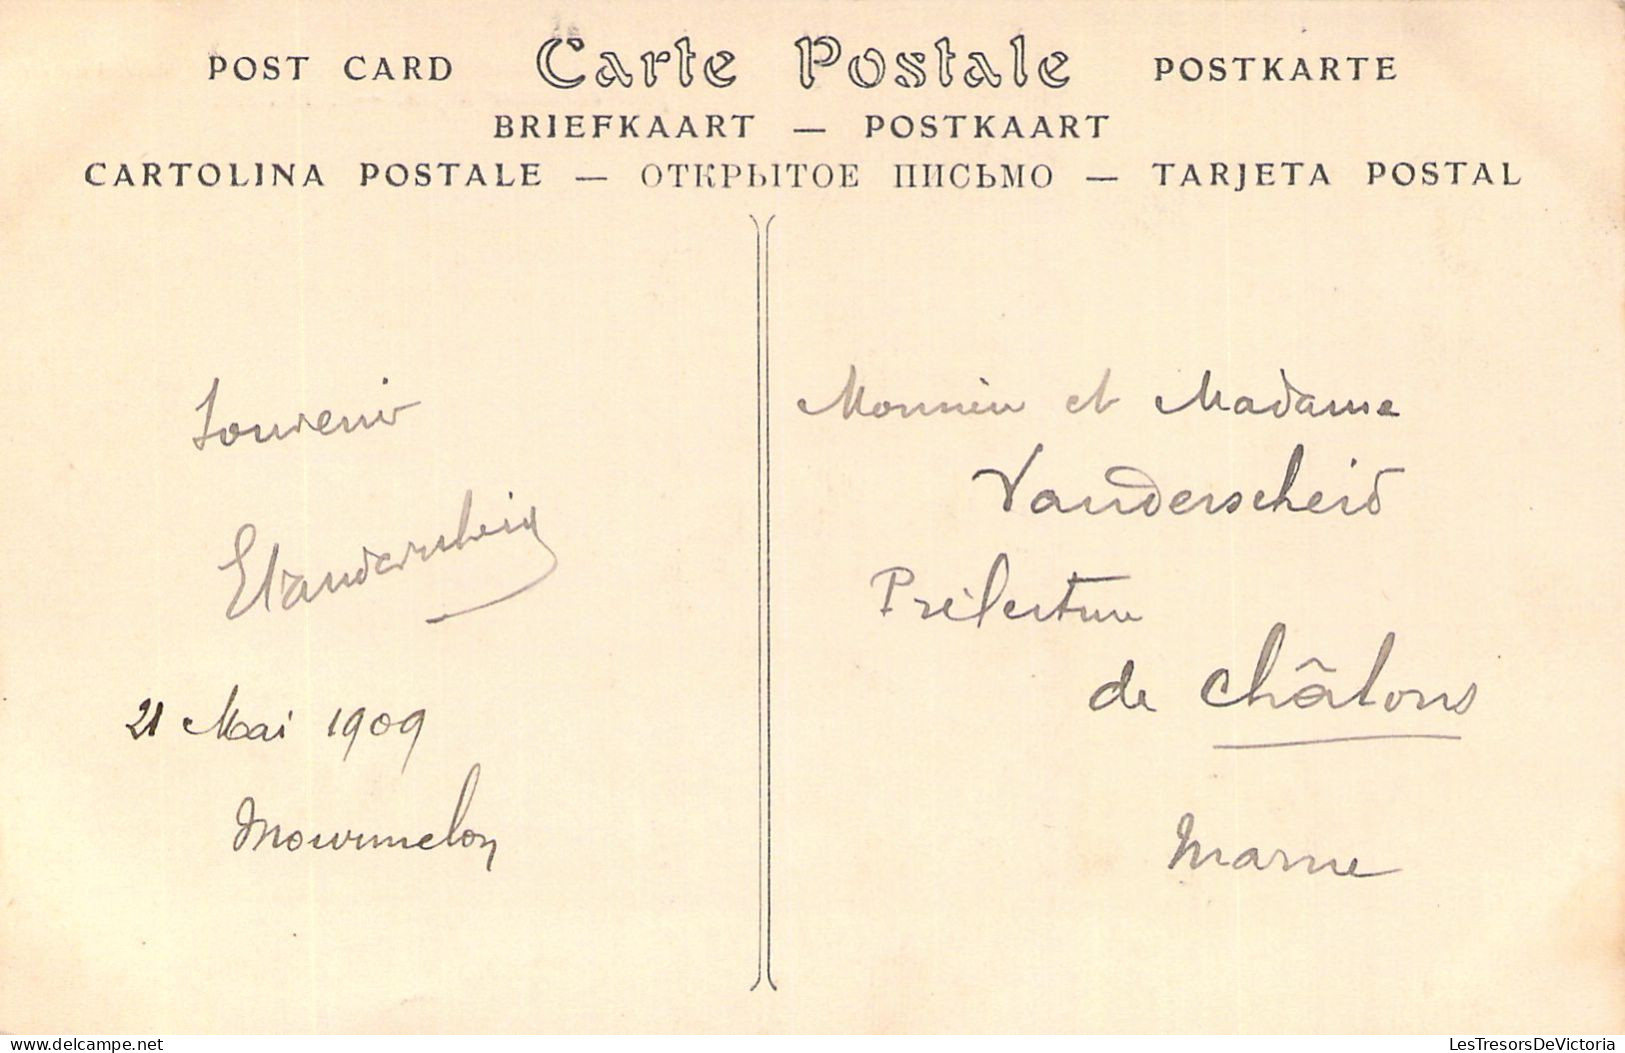 POST CARD Carte Postale POSTKARTE
BRIEFKAART — POSTKAART
CARTOLINA POSTALE — ОТКРЫТОЕ ПИСЬМО — TARJETA POSTAL
Souvenir
EVanderscheid
21 Mai 1909
Mourmelon
Monsieur et Madame
Vanderscheid
Préfecture
de Châlons
Marne
LesTresorsDeVictoria
www.delcampe.net